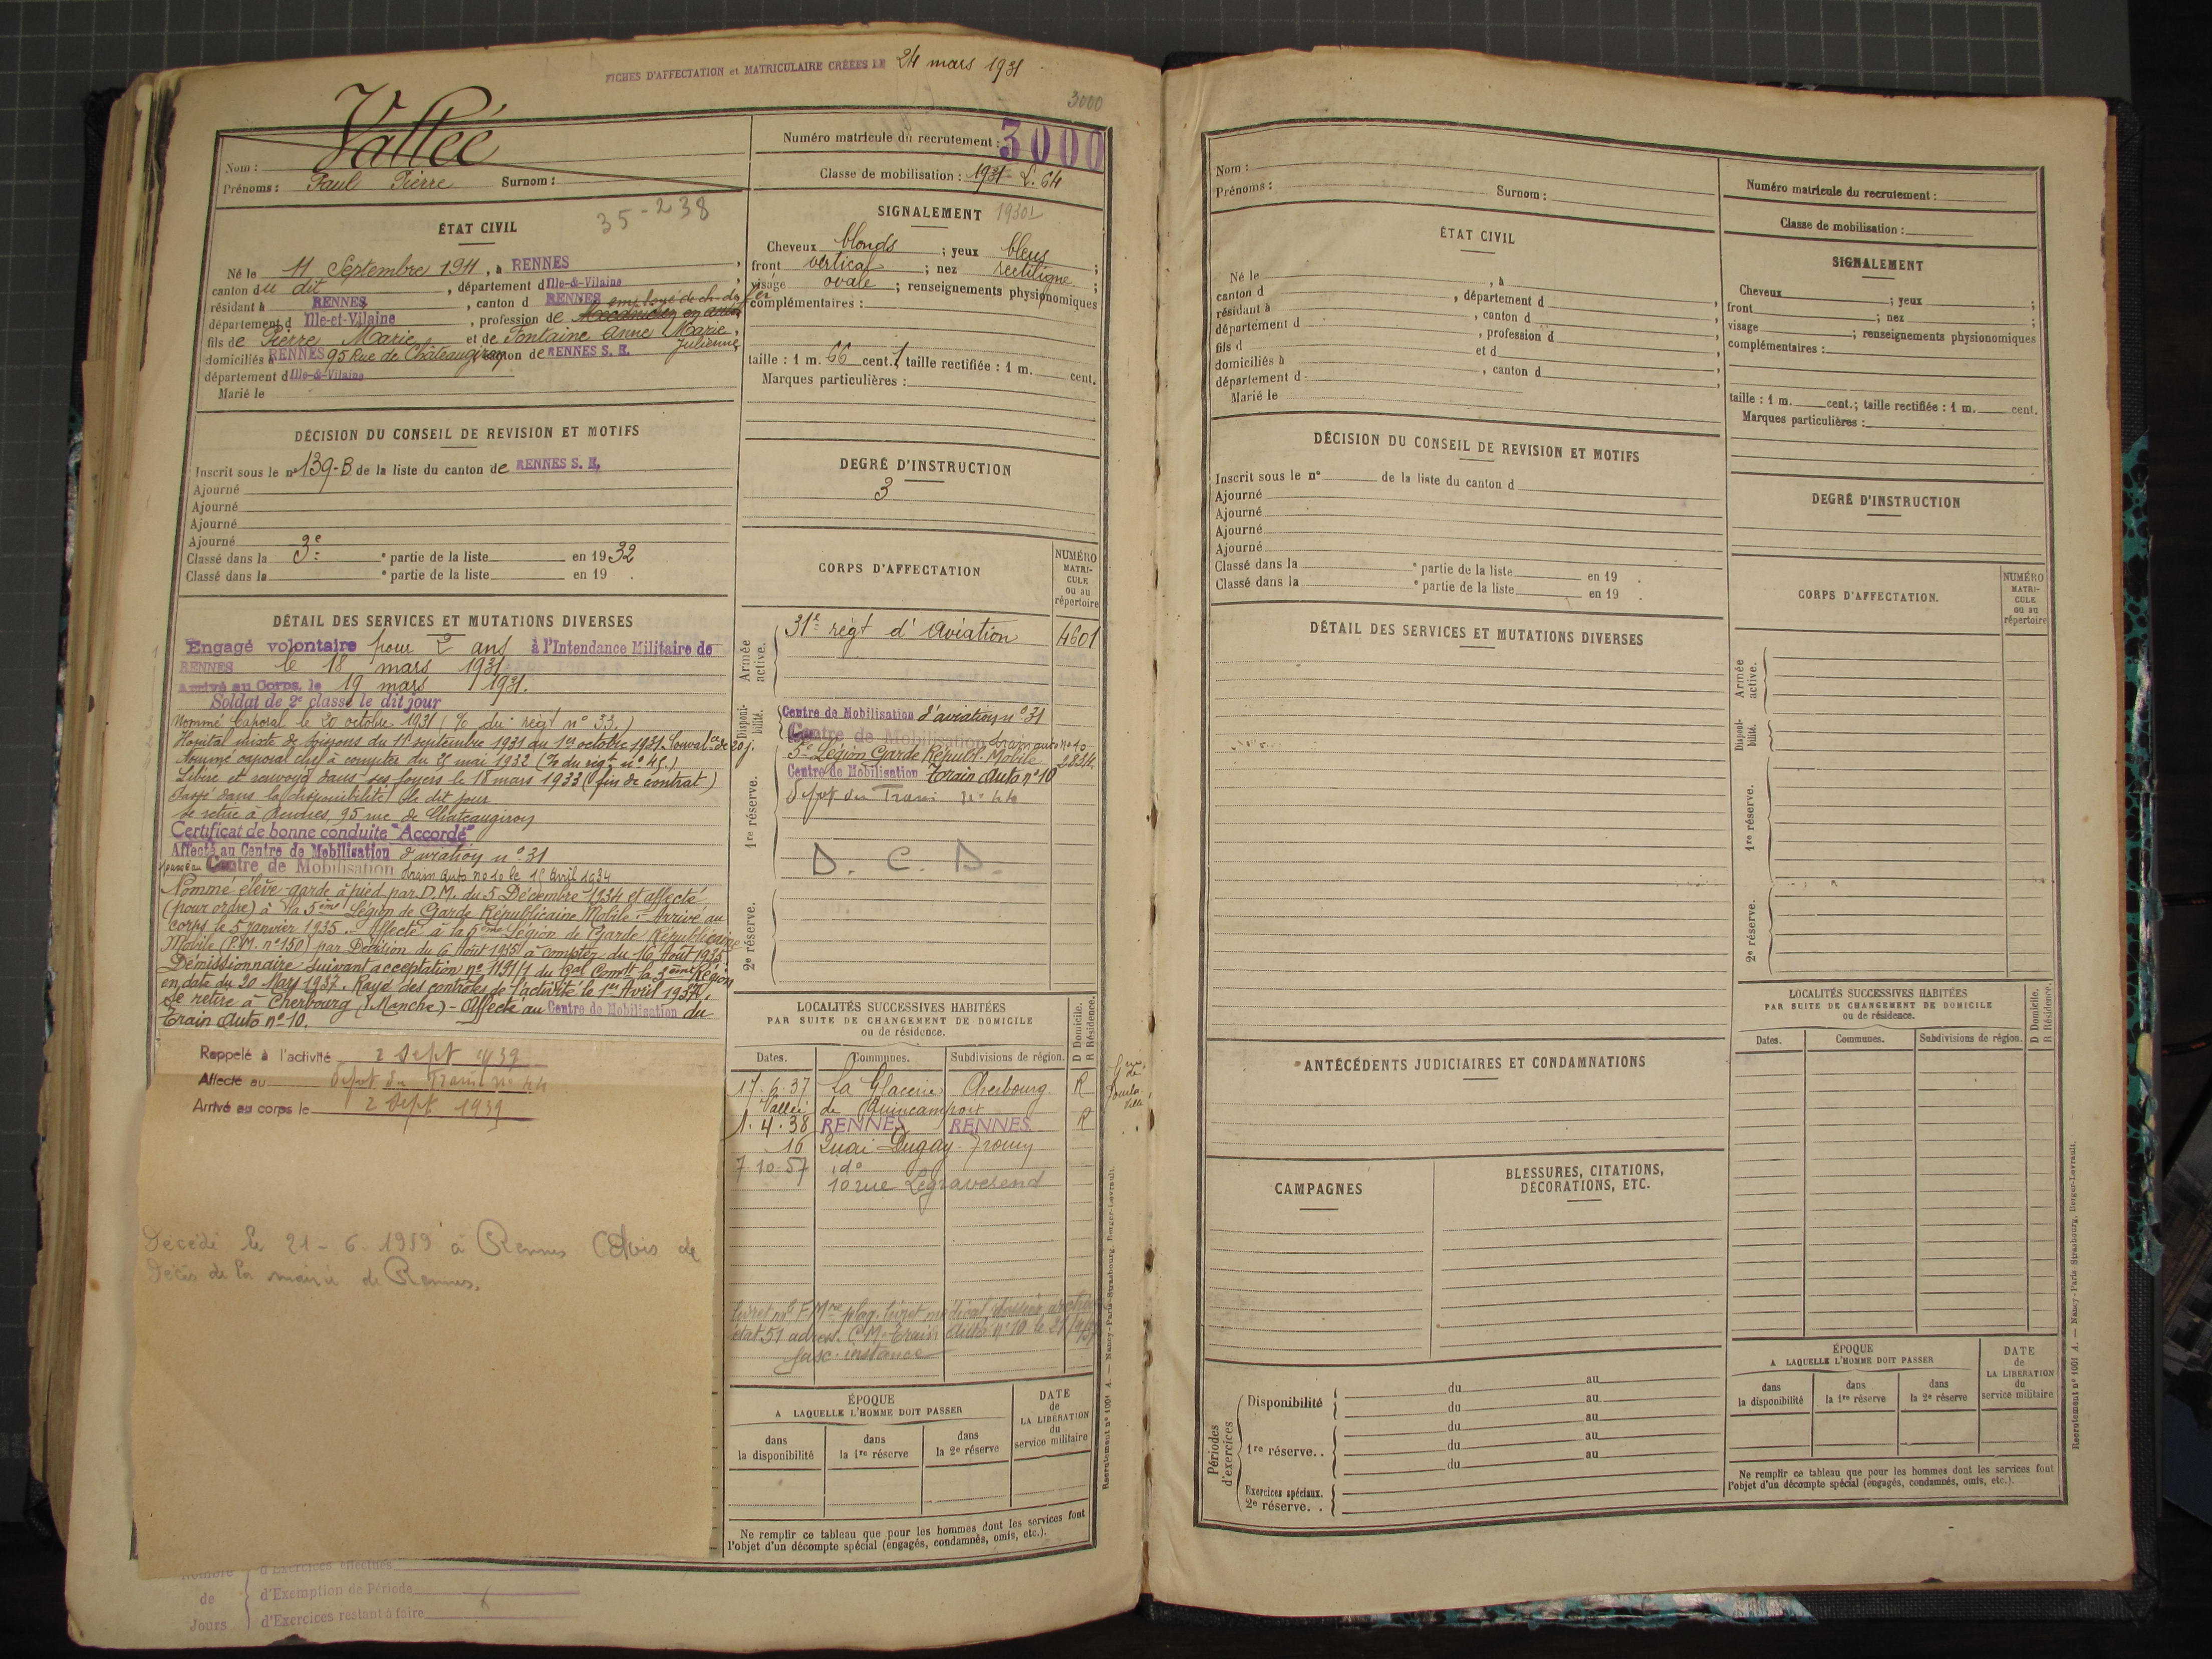 FICHES D'AFFECTATION et MATRICULAIRE CRÉÉES LE 24 mars 1931
3000
Vallée
Nom :
Prénoms : Paul Pierre Surnom :
Numéro matricule du recrutement : 3000
Classe de mobilisation : 1931 L. 64
35-238
ÉTAT CIVIL
Né le 11 Septembre 1911, à RENNES,
canton du dit, département d Ille-&-Vilaine
résidant à RENNES, canton d RENNES employé de ch. de fer
département d Ille-et-Vilaine, profession de Mécanicien en autos
fils de Pierre Marie et de Fontaine Anne Marie,
Julienne
domiciliés à RENNES 95 Rue de Châteaugiron, canton de RENNES S. E.
département d Ille-&-Vilaine
Marié le
SIGNALEMENT
Cheveux blonds ; yeux bleus ;
front vertical ; nez rectiligne ;
visage ovale ; renseignements physionomiques
complémentaires :
taille : 1 m. 66 cent. ; taille rectifiée : 1 m. cent.
Marques particulières :
DÉCISION DU CONSEIL DE REVISION ET MOTIFS
Inscrit sous le n° 139-B de la liste du canton de RENNES S. E.
Ajourné
Ajourné
Ajourné
Ajourné
Classé dans la 3e partie de la liste en 1932
Classé dans la e partie de la liste en 19 .
DEGRÉ D'INSTRUCTION
3
DÉTAIL DES SERVICES ET MUTATIONS DIVERSES
Engagé volontaire pour 2 ans à l'Intendance Militaire de
RENNES le 18 mars 1931
Arrivé au Corps, le 19 mars 1931.
Soldat de 2e classe le dit jour
Nommé Caporal le 20 octobre 1931 (% du régt n° 33.)
Hopital mixte de Soissons du 11 septembre 1931 au 1er octobre 1931. Conval ce de 20 j.
Nommé caporal chef à compter du 25 mai 1932 (% du régt n° 45.)
Libéré et renvoyé dans ses foyers le 18 mars 1933 (fin de contrat)
Passé dans la disponibilité le dit jour
Se retire à Rennes, 95 rue de Chateaugiron
Certificat de bonne conduite "Accordé"
Affecté au Centre de Mobilisation d'aviation n° 31
passé au Centre de Mobilisation train auto n° 10 le 15 Avril 1934
Nommé élève-garde à pied par D.M. du 5 Décembre 1934 et affecté
(pour ordre) à la 5ème Légion de Garde Républicaine Mobile - Arrivé au
corps le 5 janvier 1935. - Affecté à la 5ème Légion de Garde Républicaine
Mobile (P.M. n° 150) par Décision du 6 Août 1935 à compter du 16 Août 1935
Démissionnaire suivant acceptation n° 1191/1 du Gal Comdt la 3ème Région
en date du 20 Mars 1937. Rayé des contrôles de l'activité le 1er Avril 1937.
Se retire à Cherbourg (Manche) - Affecté au Centre de Mobilisation du
Train Auto n° 10.
Rappelé à l'activité 2 Sept 1939
Affecté au Dépot du Train n° 44
Arrivé au corps le 2 Sept 1939
Décédé le 21-6-1959 à Rennes (Avis de
décès de la mairie de Rennes.
Nombre de Jours
d'Exercices effectués
d'Exemption de Période
d'Exercices restant à faire
CORPS D'AFFECTATION
NUMÉRO MATRICULE ou au répertoire
Armée active.
31e régt d'Aviation 4601
Disponibilité.
Centre de Mobilisation d'aviation n° 31
Centre de Mobilisation train auto n° 10
5e Légion Garde Républ. Mobile
1re réserve.
Centre de Mobilisation Train Auto n° 10
Dépot du Train n° 44
D. C. D.
2e réserve.
LOCALITÉS SUCCESSIVES HABITÉES
PAR SUITE DE CHANGEMENT DE DOMICILE
ou de résidence.
D Domicile. R Résidence.
Dates. Communes. Subdivisions de région.
17.6.37 La Glacerie Cherbourg R
Vallée de Quincampoix
1.4.38 RENNES RENNES R
16 Quai Dugay-Trouin
7.10.57 do
10 rue Legraverend
fasc. instance
ÉPOQUE
A LAQUELLE L'HOMME DOIT PASSER
dans la disponibilité
dans la 1re réserve
dans la 2e réserve
DATE de LA LIBÉRATION du service militaire
Ne remplir ce tableau que pour les hommes dont les services font
l'objet d'un décompte spécial (engagés, condamnés, omis, etc.).
Recrutement n° 1001 A. — Nancy-Paris-Strasbourg, Berger-Levrault.
Nom :
Prénoms : Surnom :
Numéro matricule du recrutement :
Classe de mobilisation :
ÉTAT CIVIL
Né le , à ,
canton d , département d ,
résidant à , canton d ,
département d , profession d ,
fils d et d ,
domiciliés à , canton d ,
département d
Marié le
SIGNALEMENT
Cheveux ; yeux ;
front ; nez ;
visage ; renseignements physionomiques
complémentaires :
taille : 1 m. cent.; taille rectifiée : 1 m. cent.
Marques particulières :
DÉCISION DU CONSEIL DE REVISION ET MOTIFS
Inscrit sous le n° de la liste du canton d
Ajourné
Ajourné
Ajourné
Ajourné
Classé dans la e partie de la liste en 19 .
Classé dans la e partie de la liste en 19 .
DEGRÉ D'INSTRUCTION
DÉTAIL DES SERVICES ET MUTATIONS DIVERSES
CORPS D'AFFECTATION.
NUMÉRO MATRICULE ou au répertoire
Armée active.
Disponibilité.
1re réserve.
2e réserve.
LOCALITÉS SUCCESSIVES HABITÉES
PAR SUITE DE CHANGEMENT DE DOMICILE
ou de résidence.
D Domicile. R Résidence.
Dates. Communes. Subdivisions de région.
ANTÉCÉDENTS JUDICIAIRES ET CONDAMNATIONS
CAMPAGNES
BLESSURES, CITATIONS,
DÉCORATIONS, ETC.
Périodes d'exercices
Disponibilité du au
du au
1re réserve. . du au
du au
du au
Exercices spéciaux.
2e réserve. .
ÉPOQUE
A LAQUELLE L'HOMME DOIT PASSER
dans la disponibilité
dans la 1re réserve
dans la 2e réserve
DATE de LA LIBÉRATION du service militaire
Ne remplir ce tableau que pour les hommes dont les services font
l'objet d'un décompte spécial (engagés, condamnés, omis, etc.).
Recrutement n° 1001 A. — Nancy-Paris-Strasbourg, Berger-Levrault.